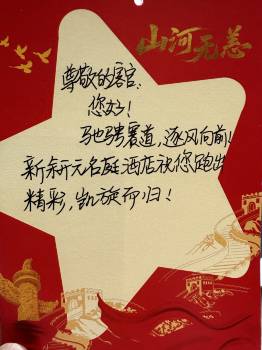 山河无恙
尊敬的客官:
您好!
驰骋赛道,逐风向前!
新余开元名庭酒店祝您跑出
精彩,凯旋而归!